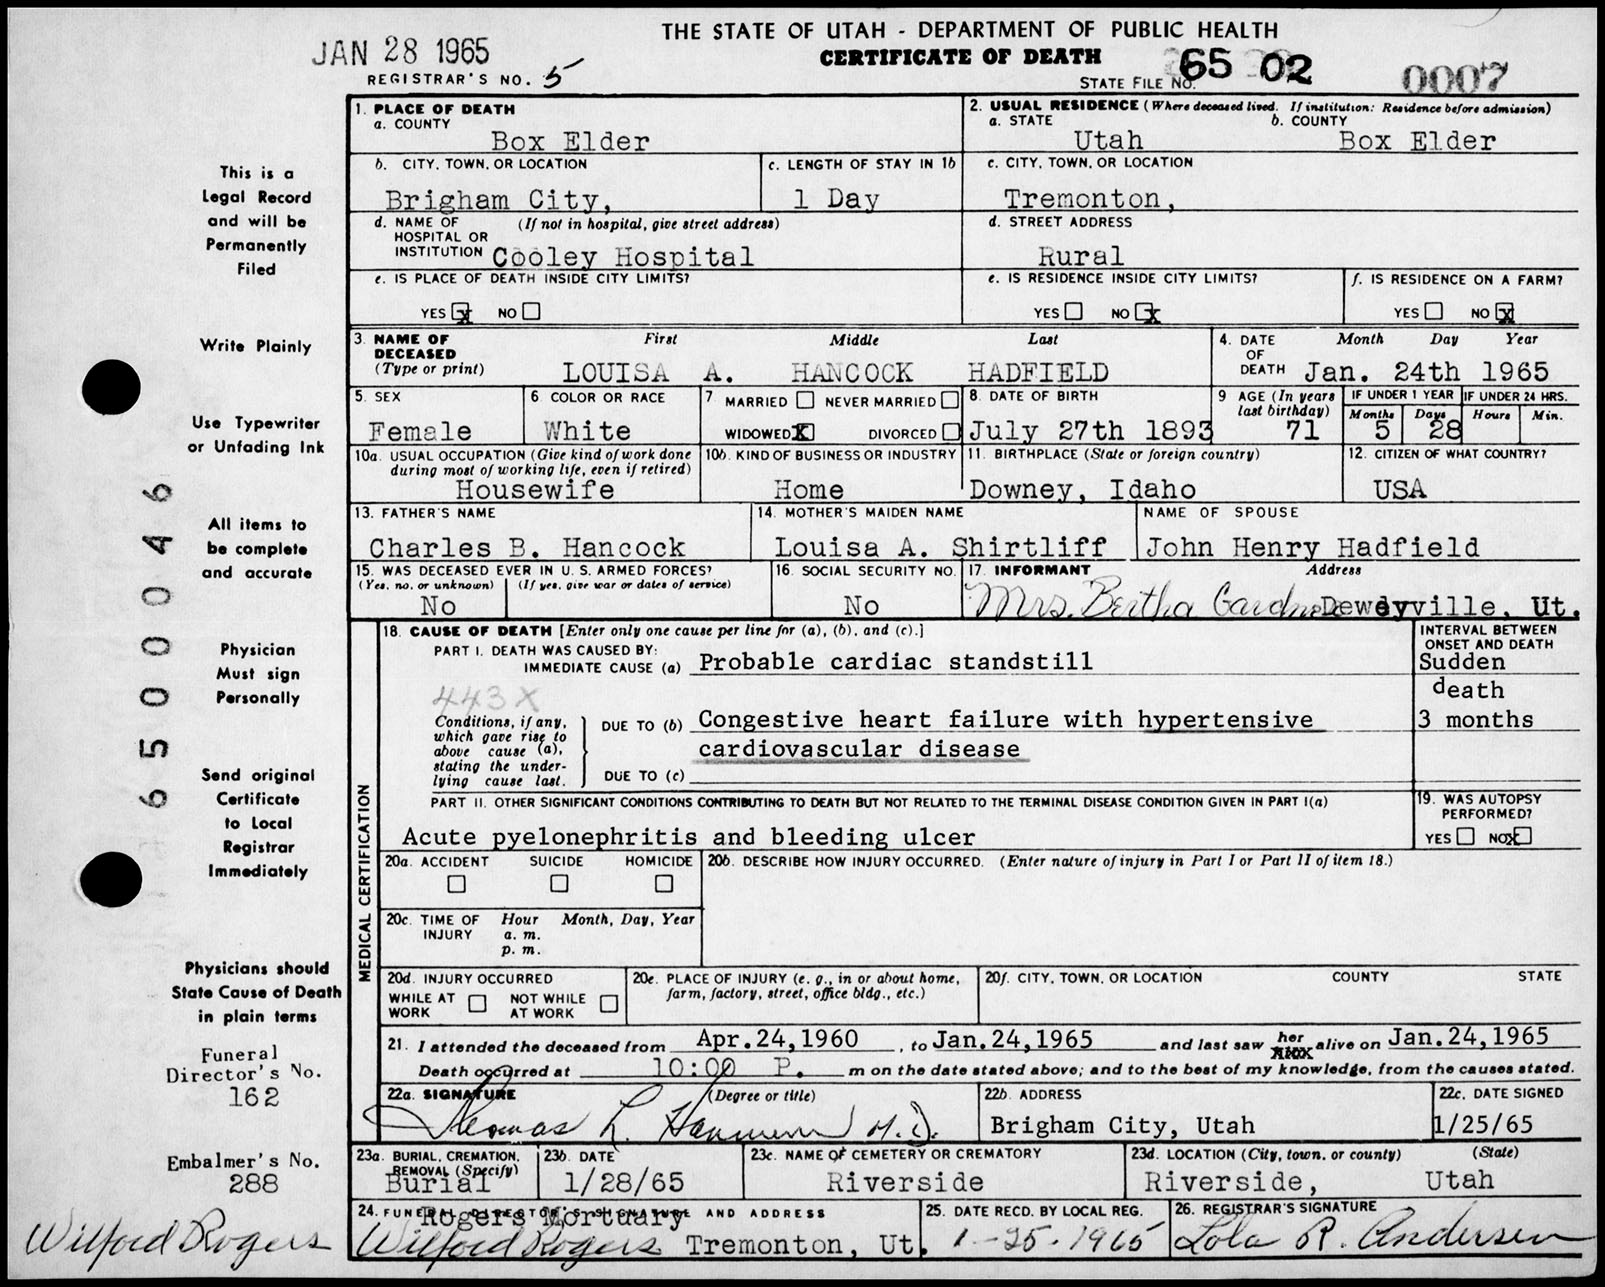 THE STATE OF UTAH - DEPARTMENT OF PUBLIC HEALTH
JAN 28 1965
CERTIFICATE OF DEATH
REGISTRAR'S NO. 5
STATE FILE NO. 65 02 0007
This is a
Legal Record
and will be
Permanently
Filed
Write Plainly
Use Typewriter
or Unfading Ink
All items to
be complete
and accurate
Physician
Must sign
Personally
Send original
Certificate
to Local
Registrar
Immediately
Physicians should
State Cause of Death
in plain terms
Funeral
Director's No.
162
Embalmer's No.
288
Wilford Rogers
65000046
1. PLACE OF DEATH
a. COUNTY
Box Elder
2. USUAL RESIDENCE (Where deceased lived. If institution: Residence before admission)
a. STATE b. COUNTY
Utah Box Elder
b. CITY, TOWN, OR LOCATION
Brigham City,
c. LENGTH OF STAY IN 1b
1 Day
c. CITY, TOWN, OR LOCATION
Tremonton,
d. NAME OF (If not in hospital, give street address)
HOSPITAL OR
INSTITUTION Cooley Hospital
d. STREET ADDRESS
Rural
e. IS PLACE OF DEATH INSIDE CITY LIMITS?
YES X NO
e. IS RESIDENCE INSIDE CITY LIMITS?
YES NO X
f. IS RESIDENCE ON A FARM?
YES NO X
3. NAME OF First Middle Last
DECEASED
(Type or print)
LOUISA A. HANCOCK HADFIELD
4. DATE Month Day Year
OF
DEATH Jan. 24th 1965
5. SEX
Female
6. COLOR OR RACE
White
7 MARRIED NEVER MARRIED
WIDOWED X DIVORCED
8. DATE OF BIRTH
July 27th 1893
9 AGE (In years
last birthday)
71
IF UNDER 1 YEAR
Months Days
5 28
IF UNDER 24 HRS.
Hours Min.
10a. USUAL OCCUPATION (Give kind of work done
during most of working life, even if retired)
Housewife
10b. KIND OF BUSINESS OR INDUSTRY
Home
11. BIRTHPLACE (State or foreign country)
Downey, Idaho
12. CITIZEN OF WHAT COUNTRY?
USA
13. FATHER'S NAME
Charles B. Hancock
14. MOTHER'S MAIDEN NAME
Louisa A. Shirtliff
NAME OF SPOUSE
John Henry Hadfield
15. WAS DECEASED EVER IN U. S. ARMED FORCES?
(Yes, no, or unknown) (If yes, give war or dates of service)
No
16. SOCIAL SECURITY NO.
No
17. INFORMANT Address
Mrs. Bertha Gardner Deweyville, Ut.
MEDICAL CERTIFICATION
18. CAUSE OF DEATH [Enter only one cause per line for (a), (b), and (c).]
PART I. DEATH WAS CAUSED BY:
IMMEDIATE CAUSE (a) Probable cardiac standstill
INTERVAL BETWEEN
ONSET AND DEATH
Sudden
death
443X
Conditions, if any,
which gave rise to
above cause (a),
stating the under-
lying cause last.
DUE TO (b) Congestive heart failure with hypertensive
3 months
cardiovascular disease
DUE TO (c)
PART II. OTHER SIGNIFICANT CONDITIONS CONTRIBUTING TO DEATH BUT NOT RELATED TO THE TERMINAL DISEASE CONDITION GIVEN IN PART I(a)
Acute pyelonephritis and bleeding ulcer
19. WAS AUTOPSY
PERFORMED?
YES NO X
20a. ACCIDENT SUICIDE HOMICIDE
20b. DESCRIBE HOW INJURY OCCURRED. (Enter nature of injury in Part I or Part II of item 18.)
20c. TIME OF Hour Month, Day, Year
INJURY a. m.
p. m.
20d. INJURY OCCURRED
WHILE AT NOT WHILE
WORK AT WORK
20e. PLACE OF INJURY (e. g., in or about home,
farm, factory, street, office bldg., etc.)
20f. CITY, TOWN, OR LOCATION COUNTY STATE
21. I attended the deceased from Apr.24,1960, to Jan.24,1965 and last saw her alive on Jan.24,1965
Death occurred at 10:00 P. m on the date stated above; and to the best of my knowledge, from the causes stated.
22a. SIGNATURE (Degree or title)
Thomas L. M.D.
22b. ADDRESS
Brigham City, Utah
22c. DATE SIGNED
1/25/65
23a. BURIAL, CREMATION,
REMOVAL (Specify)
Burial
23b. DATE
1/28/65
23c. NAME OF CEMETERY OR CREMATORY
Riverside
23d. LOCATION (City, town, or county) (State)
Riverside, Utah
24. FUNERAL DIRECTOR'S SIGNATURE AND ADDRESS
Rogers Mortuary
Wilford Rogers Tremonton, Ut.
25. DATE RECD. BY LOCAL REG.
1-25-1965
26. REGISTRAR'S SIGNATURE
Lola R. Andersen